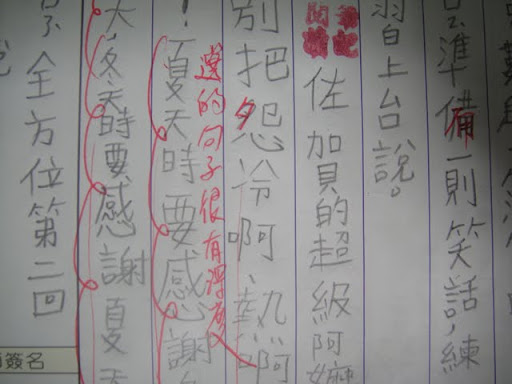 準備一則笑話,練
習上台說。
閱讀筆記
佐賀的超級阿嬤
別把怨冷啊、熱啊
選的句子很有深度
！夏天時要感謝
天,冬天時要感謝夏天
全方位第二回
簽名